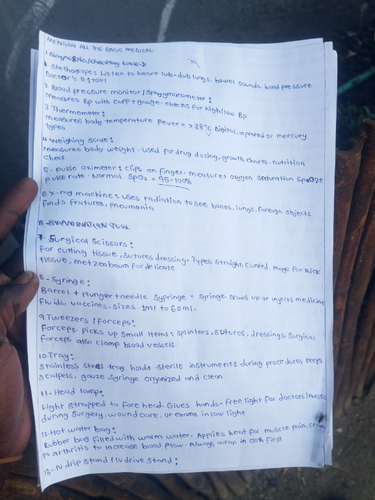 MENTION ALL THE BASIC MEDICAL
1. Stethoscope: Listen to heart lub-dub lungs, bowel sounds, blood pressure
Doctor's #1 tool
2. Blood pressure monitor / Sphygmomanometer:
Measures Bp with Cuff + gauge. checks for high/low Bp.
3. Thermometer:
Measures body temperature Fever = >38°C Digital, infrared or mercury
types
4. Weighing scale:
Measures body weight. used for drug dosing, growth charts, nutrition
Check
5. pulse oximeter: Clips on finger. measures oxygen saturation SpO2 +
pulse rate. Normal SpO2 = 95-100%
6. x-ray machine: uses radiation to see bones, lungs, foreign objects
finds fractures, pneumonia
7. Surgical Scissors:
For cutting tissue, sutures dressing. Types straight, curved, mayo for thick
tissue, metzenbaum for delicate
8. Syringe:
Barrel + plunger + needle = Syringe. Draws up or injects medicine
fluids, vaccines. sizes 1ml to 60ml.
9. Tweezers / Forceps:
Forceps picks up small items: splinters, sutures, dressings. Surgical
Forceps also clamp blood vessels
10. Tray:
Stainless steel tray holds sterile instruments during procedures keeps
scalpels, gauze syringe organized and clean
11. Head lamp:
Light strapped to fore head. Gives hands-free light for doctors
during surgery, wound care, or exams in low light
12. Hot water bag:
Rubber bag filled with warm water. Applies heat for muscle pain,
arthritis to increase blood flow. Always wrap in cloth first
13. IV drip stand / IV drive stand: